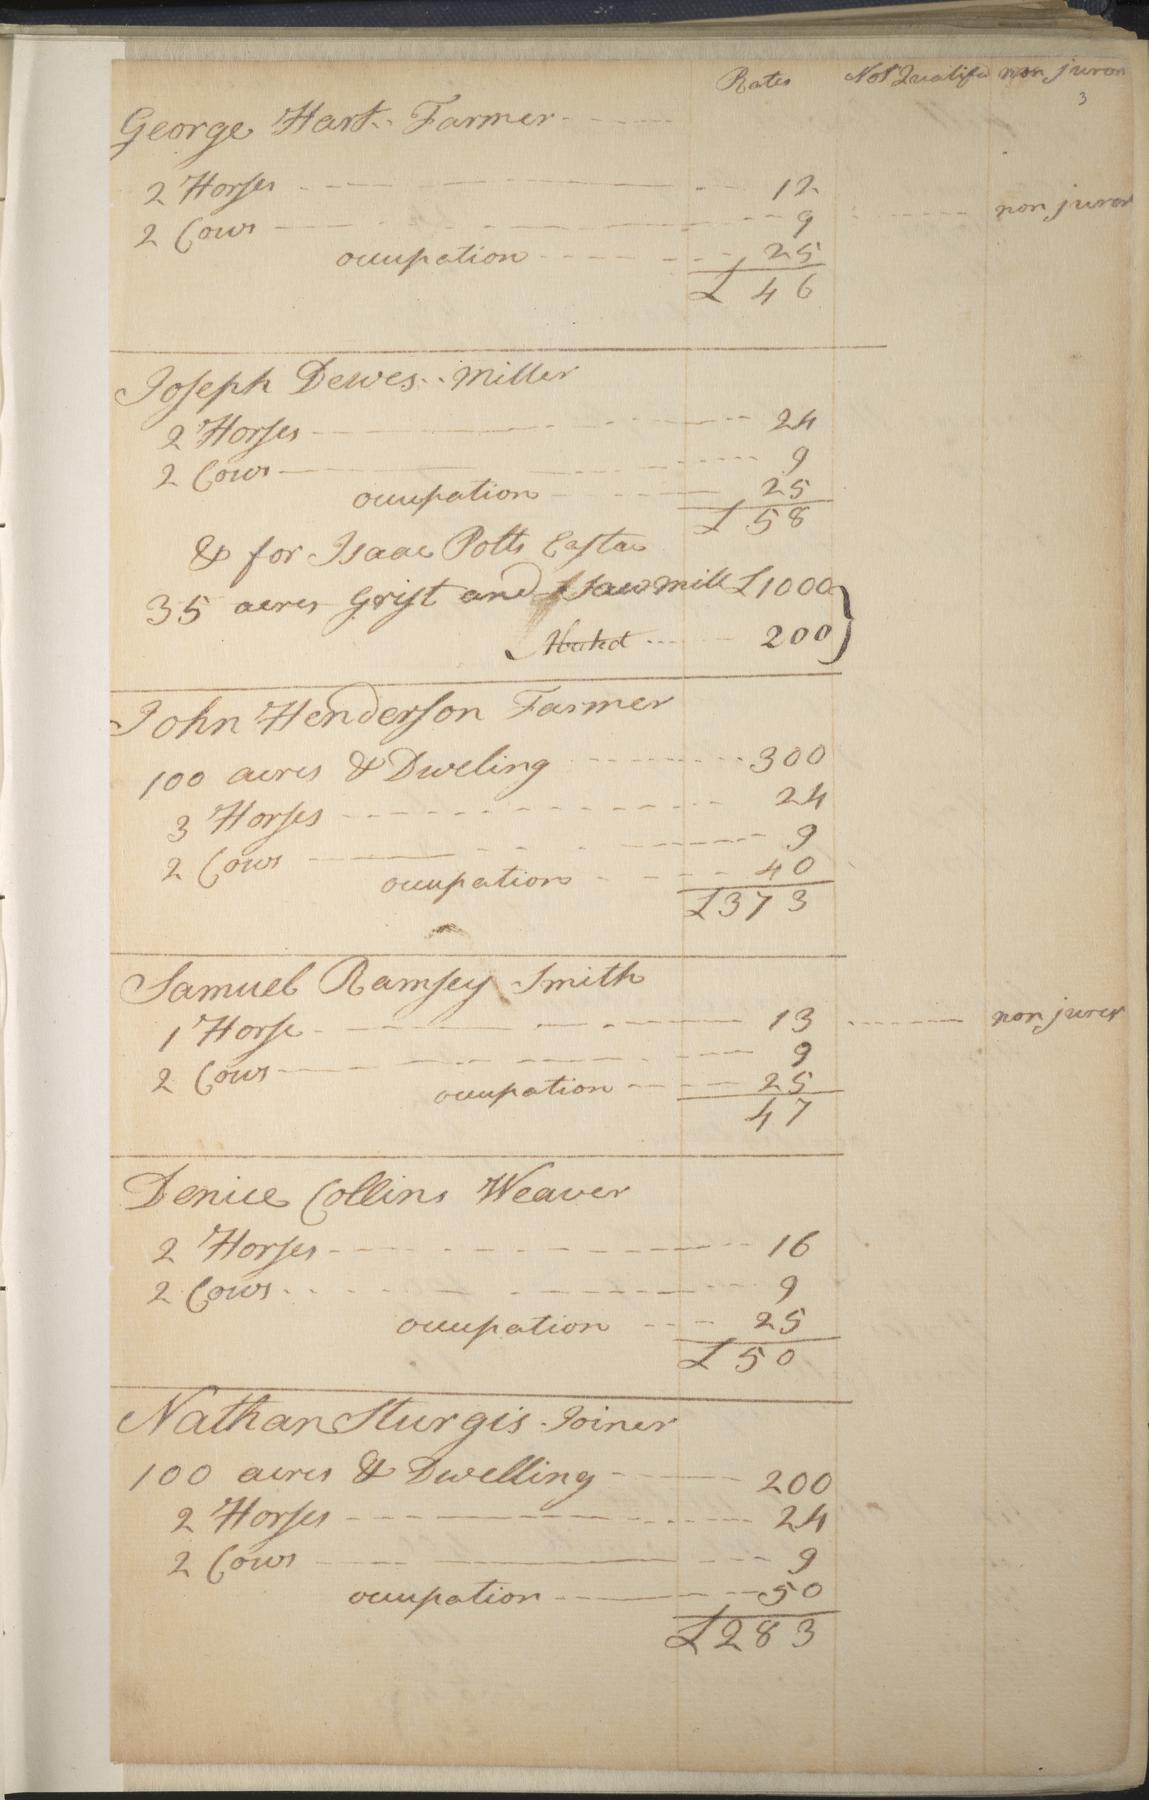 Rates Not Qualifd non juron
3
George Hart Farmer
2 Horses 12
2 Cows 9 non juror
occupation 25
£ 46
Joseph Dewes Miller
2 Horses 24
2 Cows 9
occupation 25
£ 58
& for Isaac Potts Easta
35 acres Grist and Sawmill £1000
200
John Henderson Farmer
100 acres & Dweling 300
3 Horses 24
2 Cows 9
occupation 40
£373
Samuel Ramsey Smith
1 Horse 13 non juror
2 Cows 9
occupation 25
47
Denice Collins Weaver
2 Horses 16
2 Cows 9
occupation 25
£ 50
Nathan Sturgis Joiner
100 acres & Dwelling 200
2 Horses 24
2 Cows 9
occupation 50
£283